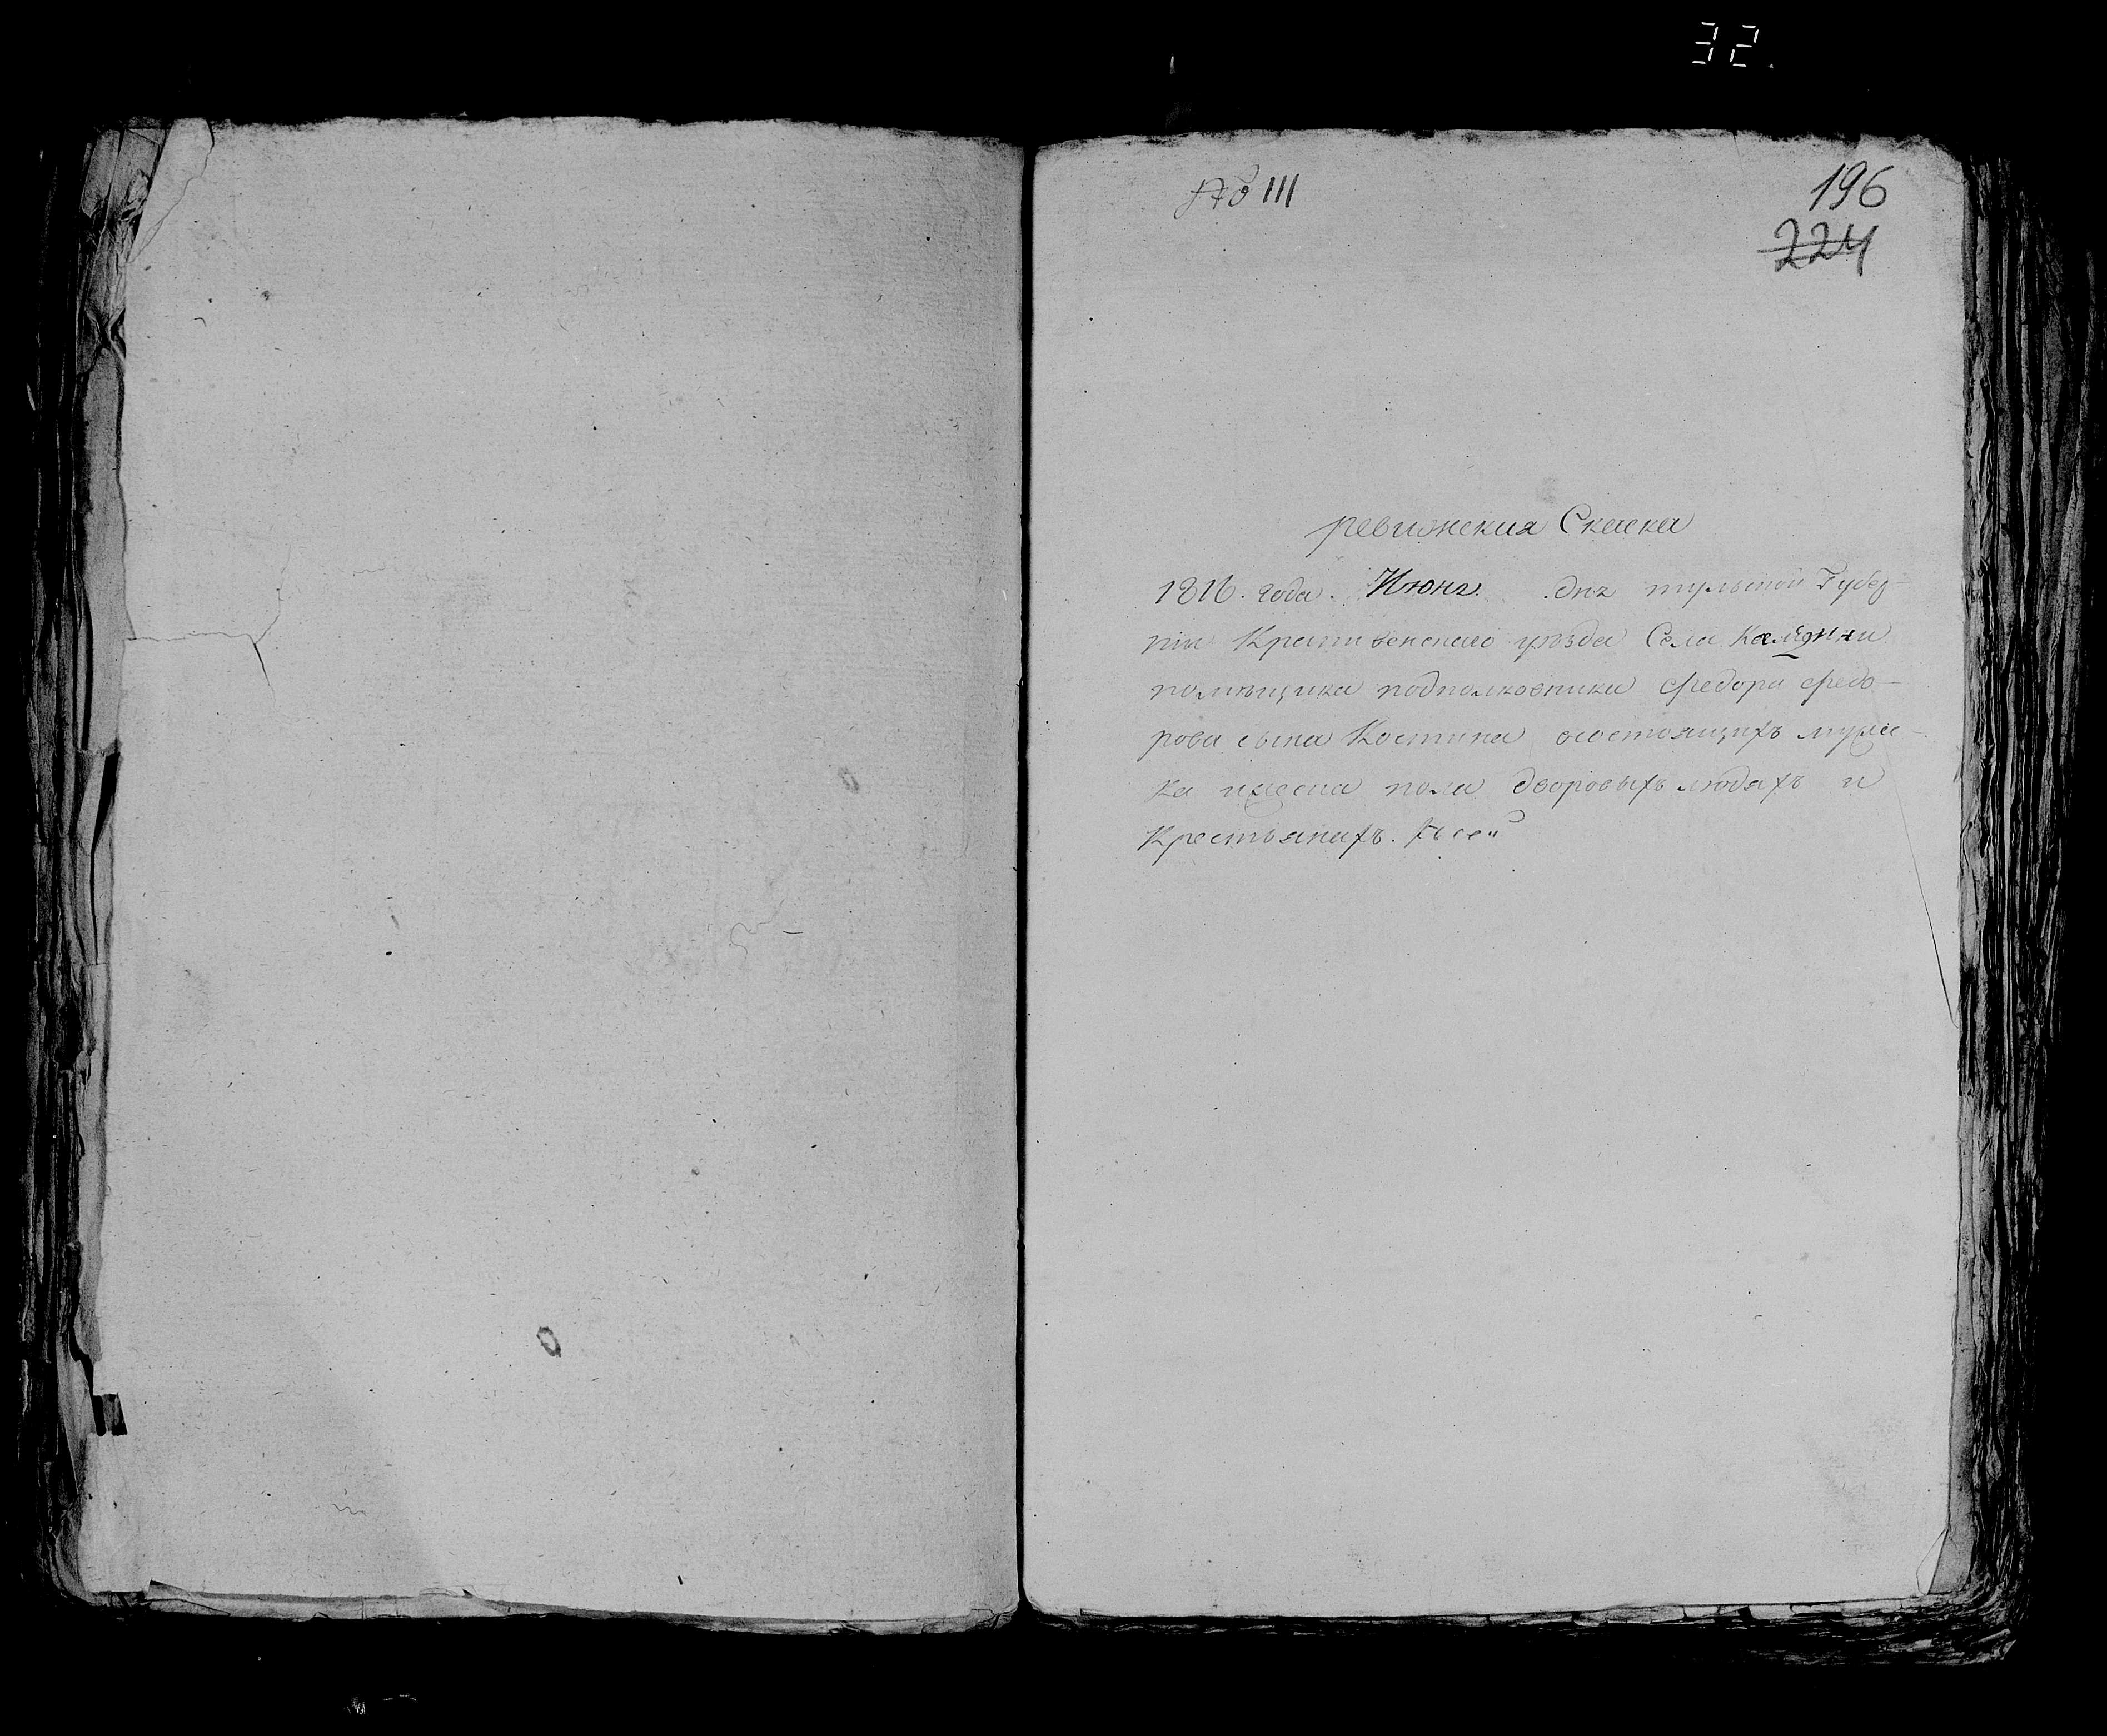 32.
№ 111
196
224
ревижская Скаска
1816. года. Июня дня тульской Губер-
ніи Крапивенскаго уѣзда Села
помѣщика подполковника Федора Федо-
рова сына Костина осостоящихъ муже-
ка иженска пола дворовыхъ людяхъ и
Крестьянахъ.